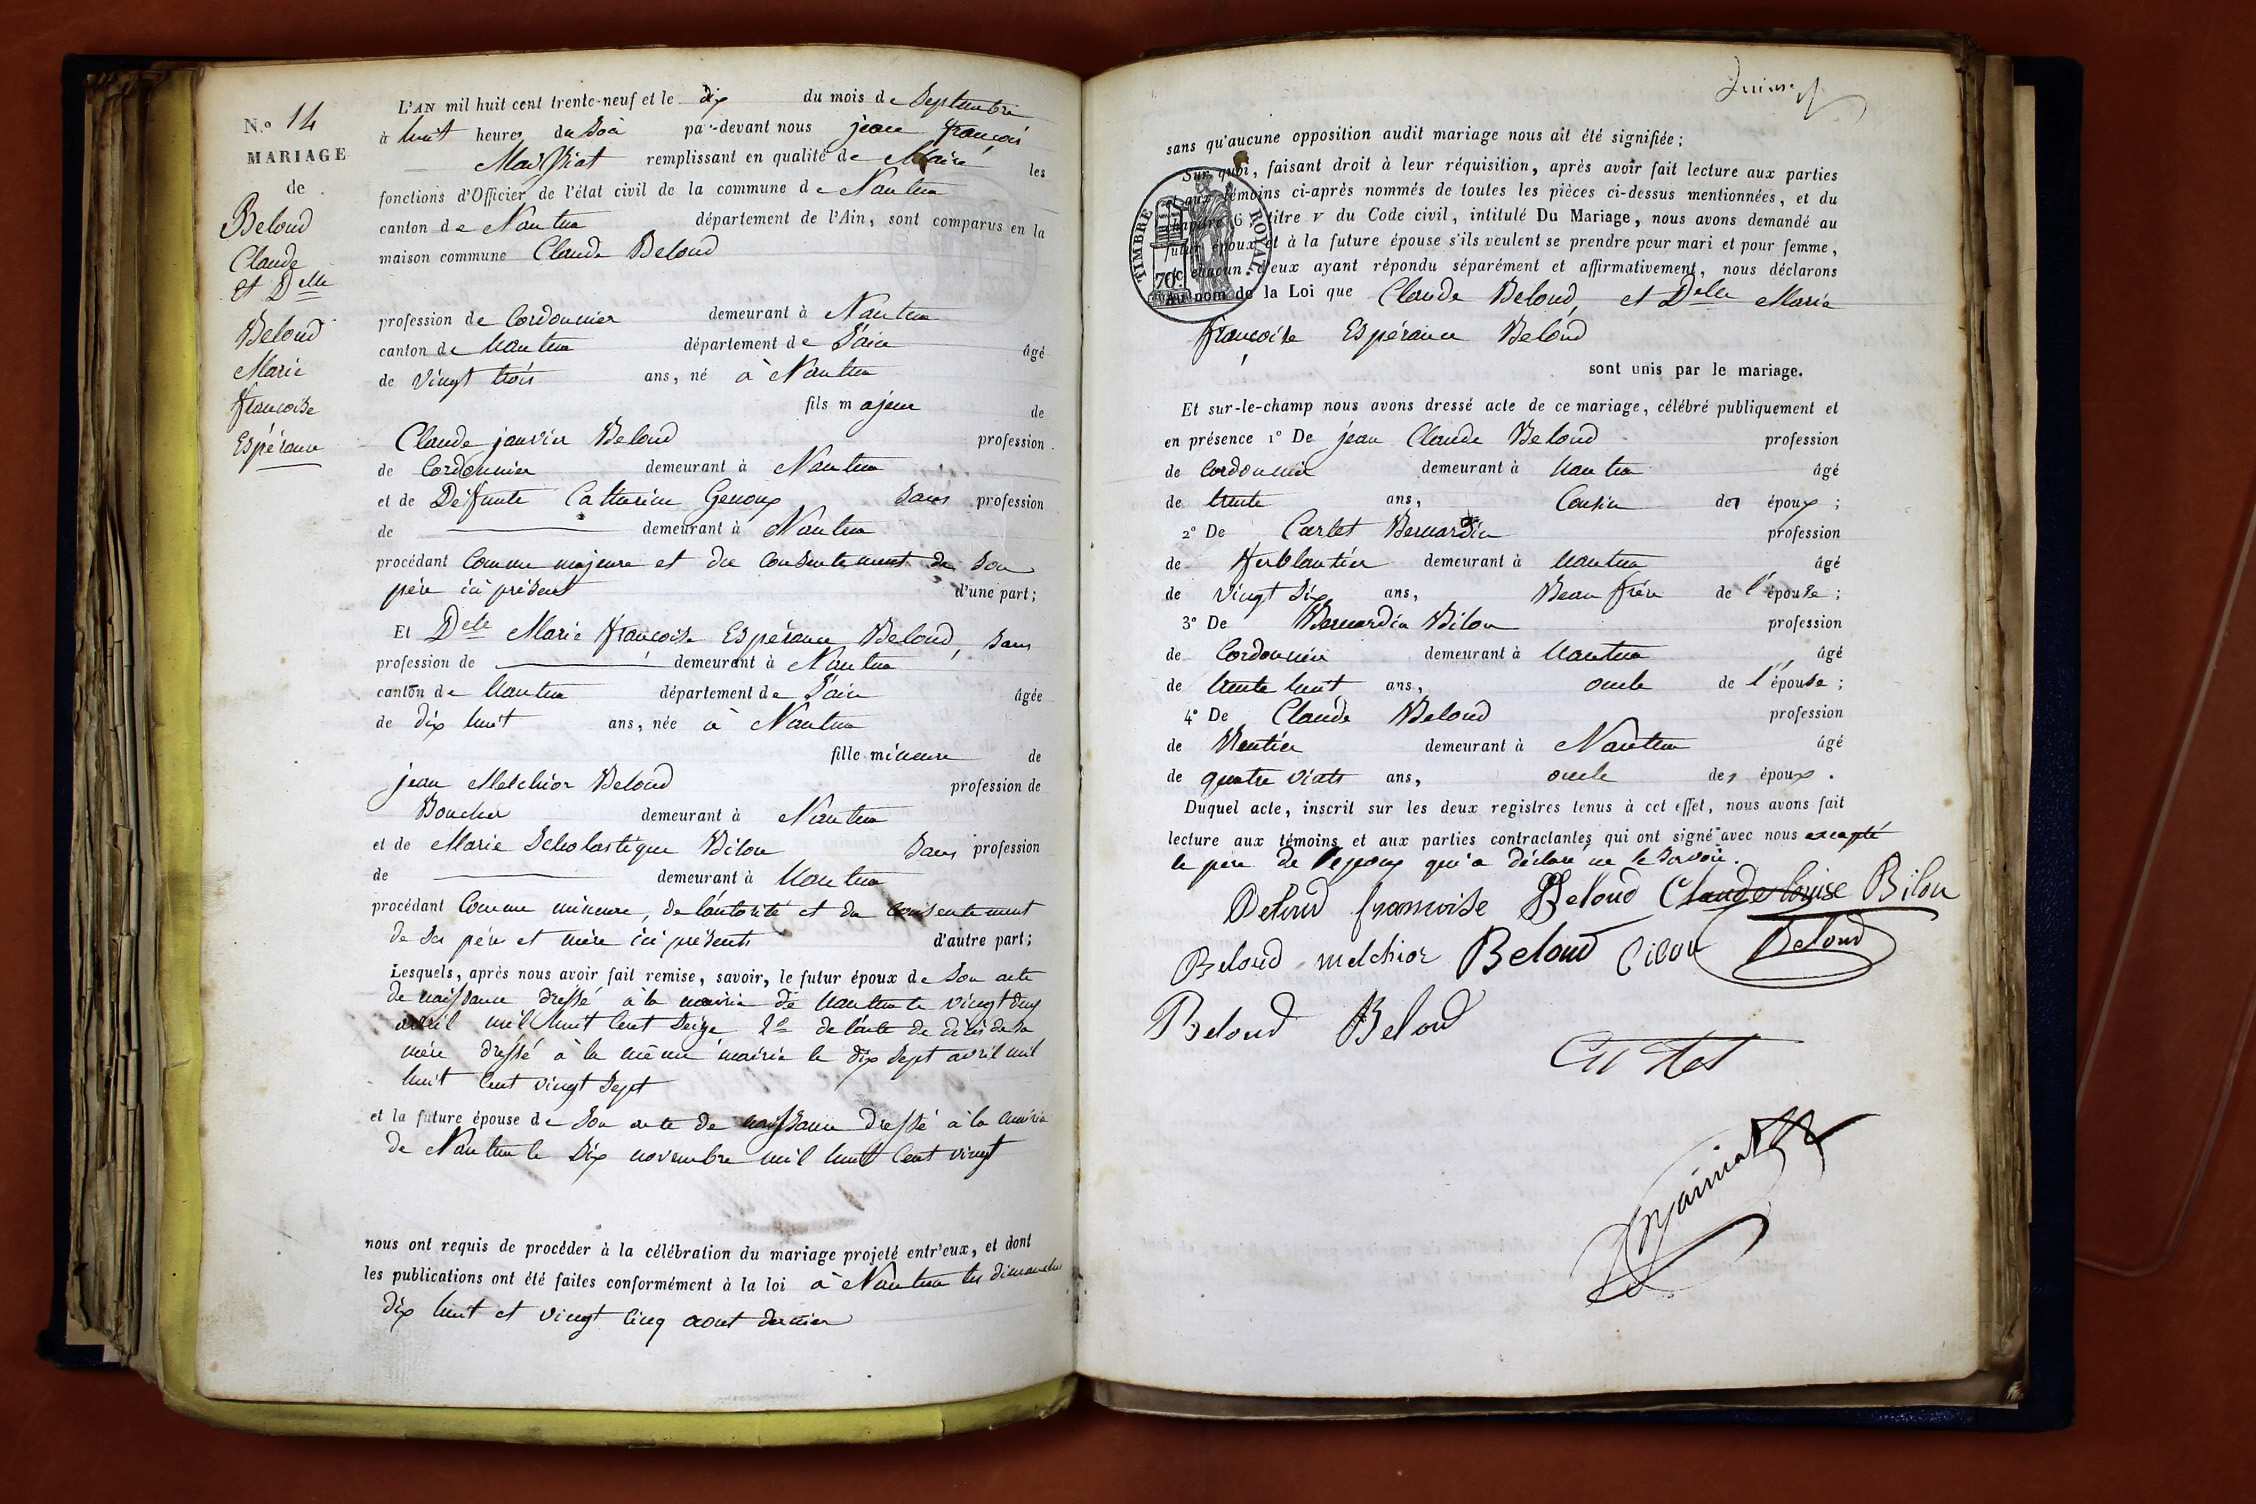 N.° 14
MARIAGE
de
Beloud
Claude
et Delle
Beloud
Marie
françoise
Espérance
L'AN mil huit cent trente-neuf et le dix du mois de Septembre
à huit heures du Soir par-devant nous jean françois
remplissant en qualité de Maire les
fonctions d'Officier de l'état civil de la commune de Nantua
canton de Nantua département de l'Ain, sont comparus en la
maison commune Claude Beloud
profession de Cordonnier demeurant à Nantua
canton de Nantua département de l'ain âgé
de vingt trois ans, né à Nantua
fils majeur de
Claude janvier Beloud profession
de Cordonnier demeurant à Nantua
et de Défunte Catherine Genoux Sans profession
de demeurant à Nantua
procédant Comme majeure et du Consentement de Son
père ici présent d'une part;
Et Delle Marie françoise Espérance Beloud, Sans
profession de demeurant à Nantua
canton de Nantua département de l'ain âgée
de dix huit ans, née à Nantua
fille mineure de
jean Melchior Beloud profession de
Boucher demeurant à Nantua
et de Marie Scholastique Bilon Sans profession
de demeurant à Nantua
procédant Comme mineure, de l'autorité et du consentement
de Ses père et mère ici présents d'autre part;
Lesquels, après nous avoir fait remise, savoir, le futur époux de Son acte
de naissance dressé à la mairie de Nantua le vingt deux
avril mil huit Cent Seize 2° de l'acte de décès de Sa
mère dressé à la même mairie le dix Sept avril mil
huit Cent vingt Sept
et la future épouse de Son acte de naissance dressé à la mairie
de Nantua le Dix novembre mil huit Cent vingt
nous ont requis de procéder à la célébration du mariage projeté entr'eux, et dont
les publications ont été faites conformément à la loi à Nantua les dimanches
dix huit et vingt Cinq aout dernier
sans qu'aucune opposition audit mariage nous ait été signifiée;
Sur quoi, faisant droit à leur réquisition, après avoir fait lecture aux parties
et aux témoins ci-après nommés de toutes les pièces ci-dessus mentionnées, et du
chapitre 6, titre v du Code civil, intitulé Du Mariage, nous avons demandé au
futur époux et à la future épouse s'ils veulent se prendre pour mari et pour femme,
et chacun d'eux ayant répondu séparément et affirmativement, nous déclarons
Au nom de la Loi que Claude Beloud, et Delle Marie
françoise Espérance Beloud
sont unis par le mariage.
TIMBRE ROYAL
70c
Et sur-le-champ nous avons dressé acte de ce mariage, célébré publiquement et
en présence 1° De jean Claude Beloud profession
de Cordonnier demeurant à Nantua âgé
de trente ans, Cousin des époux;
2° De Carlet Bernardin profession
de ferblantier demeurant à Nantua âgé
de vingt Six ans, Beau frère de l'épouse;
3° De Bernardin Bilon profession
de Cordonnier demeurant à Nantua âgé
de trente huit ans, oncle de l'épouse;
4° De Claude Beloud profession
de Rentier demeurant à Nantua âgé
de quatre vints ans, oncle des époux.
Duquel acte, inscrit sur les deux registres tenus à cet effet, nous avons fait
lecture aux témoins et aux parties contractantes qui ont signé avec nous excepté
le père de l'epoux qui a déclaré ne le Savoir.
Beloud françoise Beloud Claude louise Bilon
Beloud melchior Beloud Bilon Beloud
Beloud Beloud